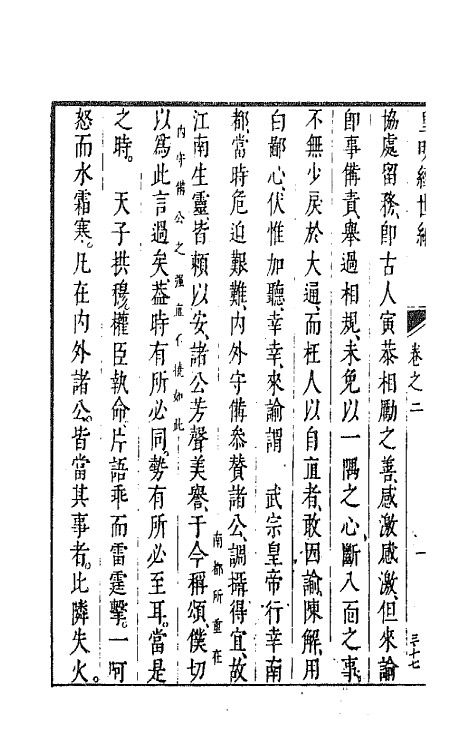 皇明經世編
卷之二
三十七
協處留務、卽古人寅恭相勵之善、感激感激、但來諭
卽事備責、舉過相規、未免以一隅之心、斷入面之事、
不無少戾於大通、而枉人以自直者、敢因諭陳解、用
白鄙心、伏惟加聽、幸幸、來諭謂 武宗皇帝行幸南
都、當時危迫艱難、内外守備叅贊諸公、調攝得宜、故
南都所重在
江南生靈皆賴以安、諸公芳聲美譽、于今稱頌、僕切
内守備公之
以爲此言過矣、葢時有所必同、勢有所必至耳。當是
之時。 天子拱穆、權臣執命、片語乖而雷霆擊。一呵
怒而水霜寒。凡在内外諸公。皆當其事者。比隣失火。